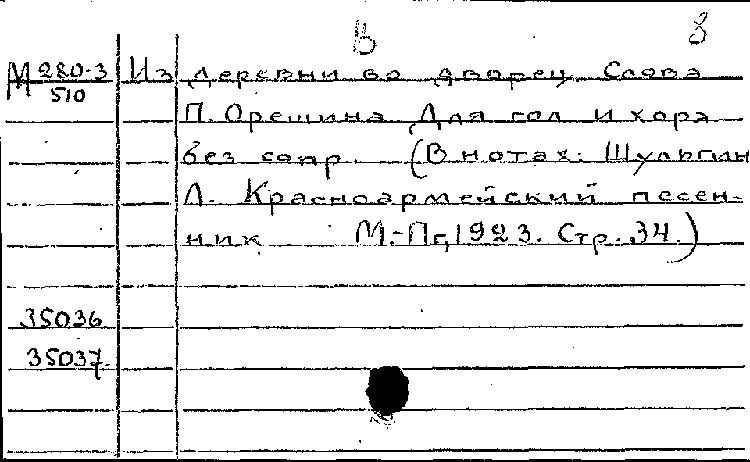 В 8
М 280-3 Из деревни во дворец. Слова
510
П. Орешина. Для гол. и хора
без сопр. (В нотах: Шульгин
Л. Красноармейский песен-
ник М.-Пг, 1923. Стр. 34.)
35036
35037